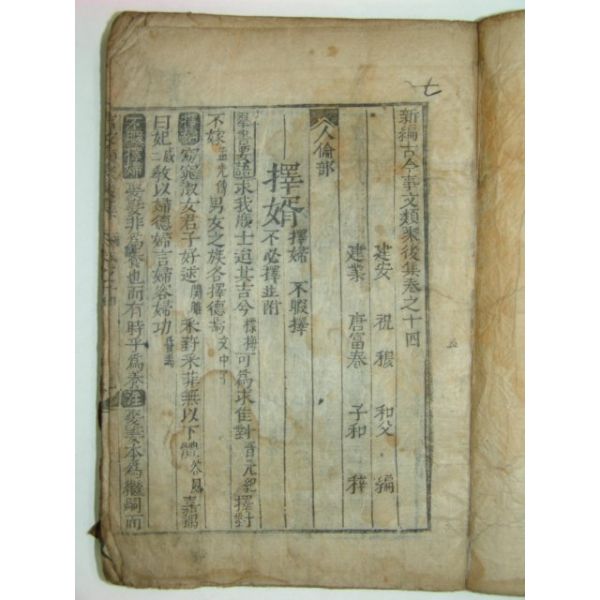 七
新編古今事文類聚後集卷之十四
建安 祝穆 和父 編
建業 唐富春 子和 梓
人倫部
擇壻 擇婦 不暇擇 不必擇並附
羣書要語 求我庶士迨其吉兮 摽梅 可為求佳對 晉元紀 擇對
不嫁 孟光傳 男女之族各擇德焉 文中子
擇婦 窈窕淑女君子好逑 關雎 采葑采菲無以下體 谷風 嘉耦
曰妃 教以婦德婦言婦容婦功
娶妻非為養也而有時乎為養 注 娶妻本為繼嗣而